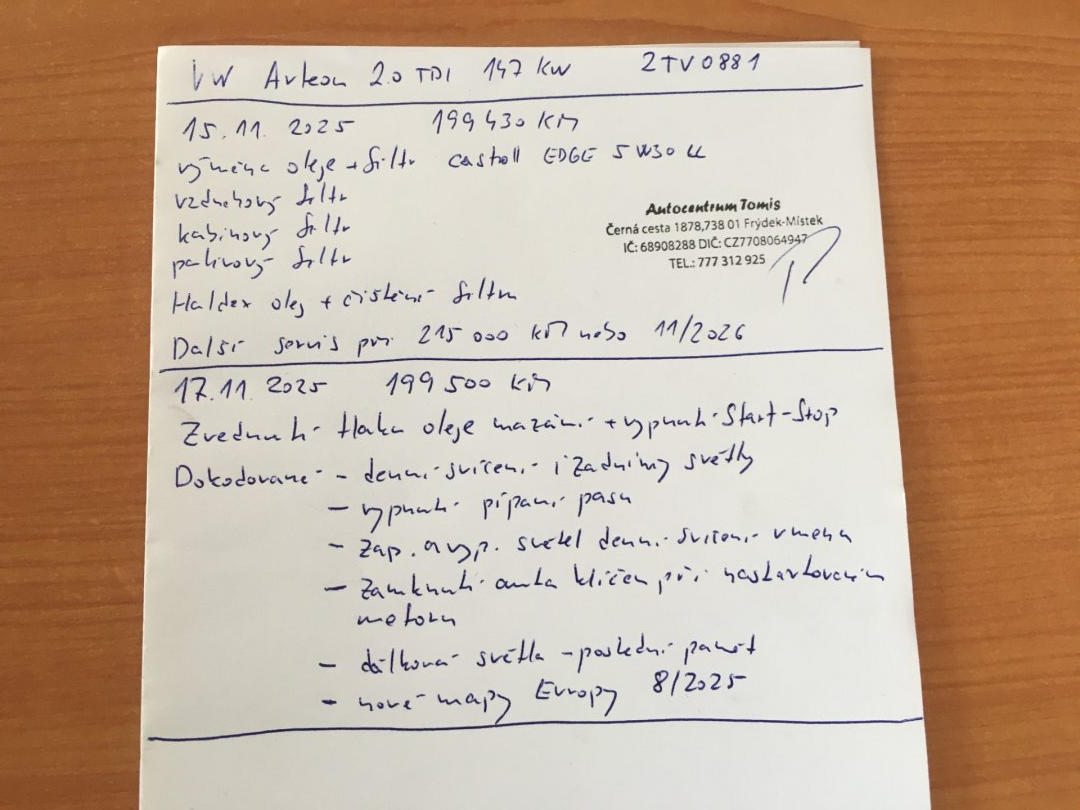 VW Arteon 2.0 TDI 147 KW 2TV0881
15.11. 2025 199 430 KM
výměna oleje + filtr castroll EDGE 5W30 LL
vzduchový filtr
kabinový filtr
palivový filtr
Haldex olej + čištění filtru
Další servis při 215 000 KM nebo 11/2026
Autocentrum Tomis
Černá cesta 1878,738 01 Frýdek-Místek
IČ: 68908288 DIČ: CZ7708064947
TEL.: 777 312 925
17.11. 2025 199 500 KM
Zvednutí tlaku oleje mazání + vypnutí Start-Stop
Dokodované - denní svícení i zadními světly
- vypnutí pípání pasu
- zap. a vyp. světel denní svícení v menu
- zamknutí auta klíčem při nastartovaném
motoru
- dálková světla - poslední paměť
- nové mapy Evropy 8/2025